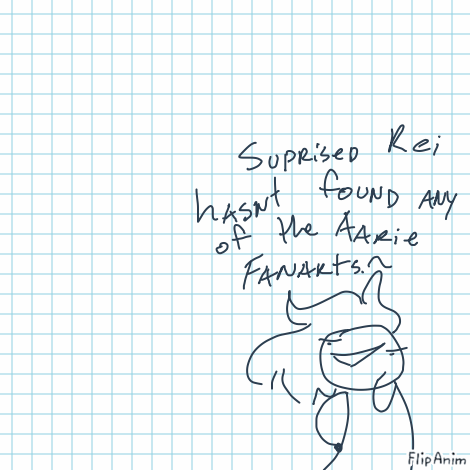 Suprised Rei
hasnt found any
of the Aarie
Fanarts.~
FlipAnim